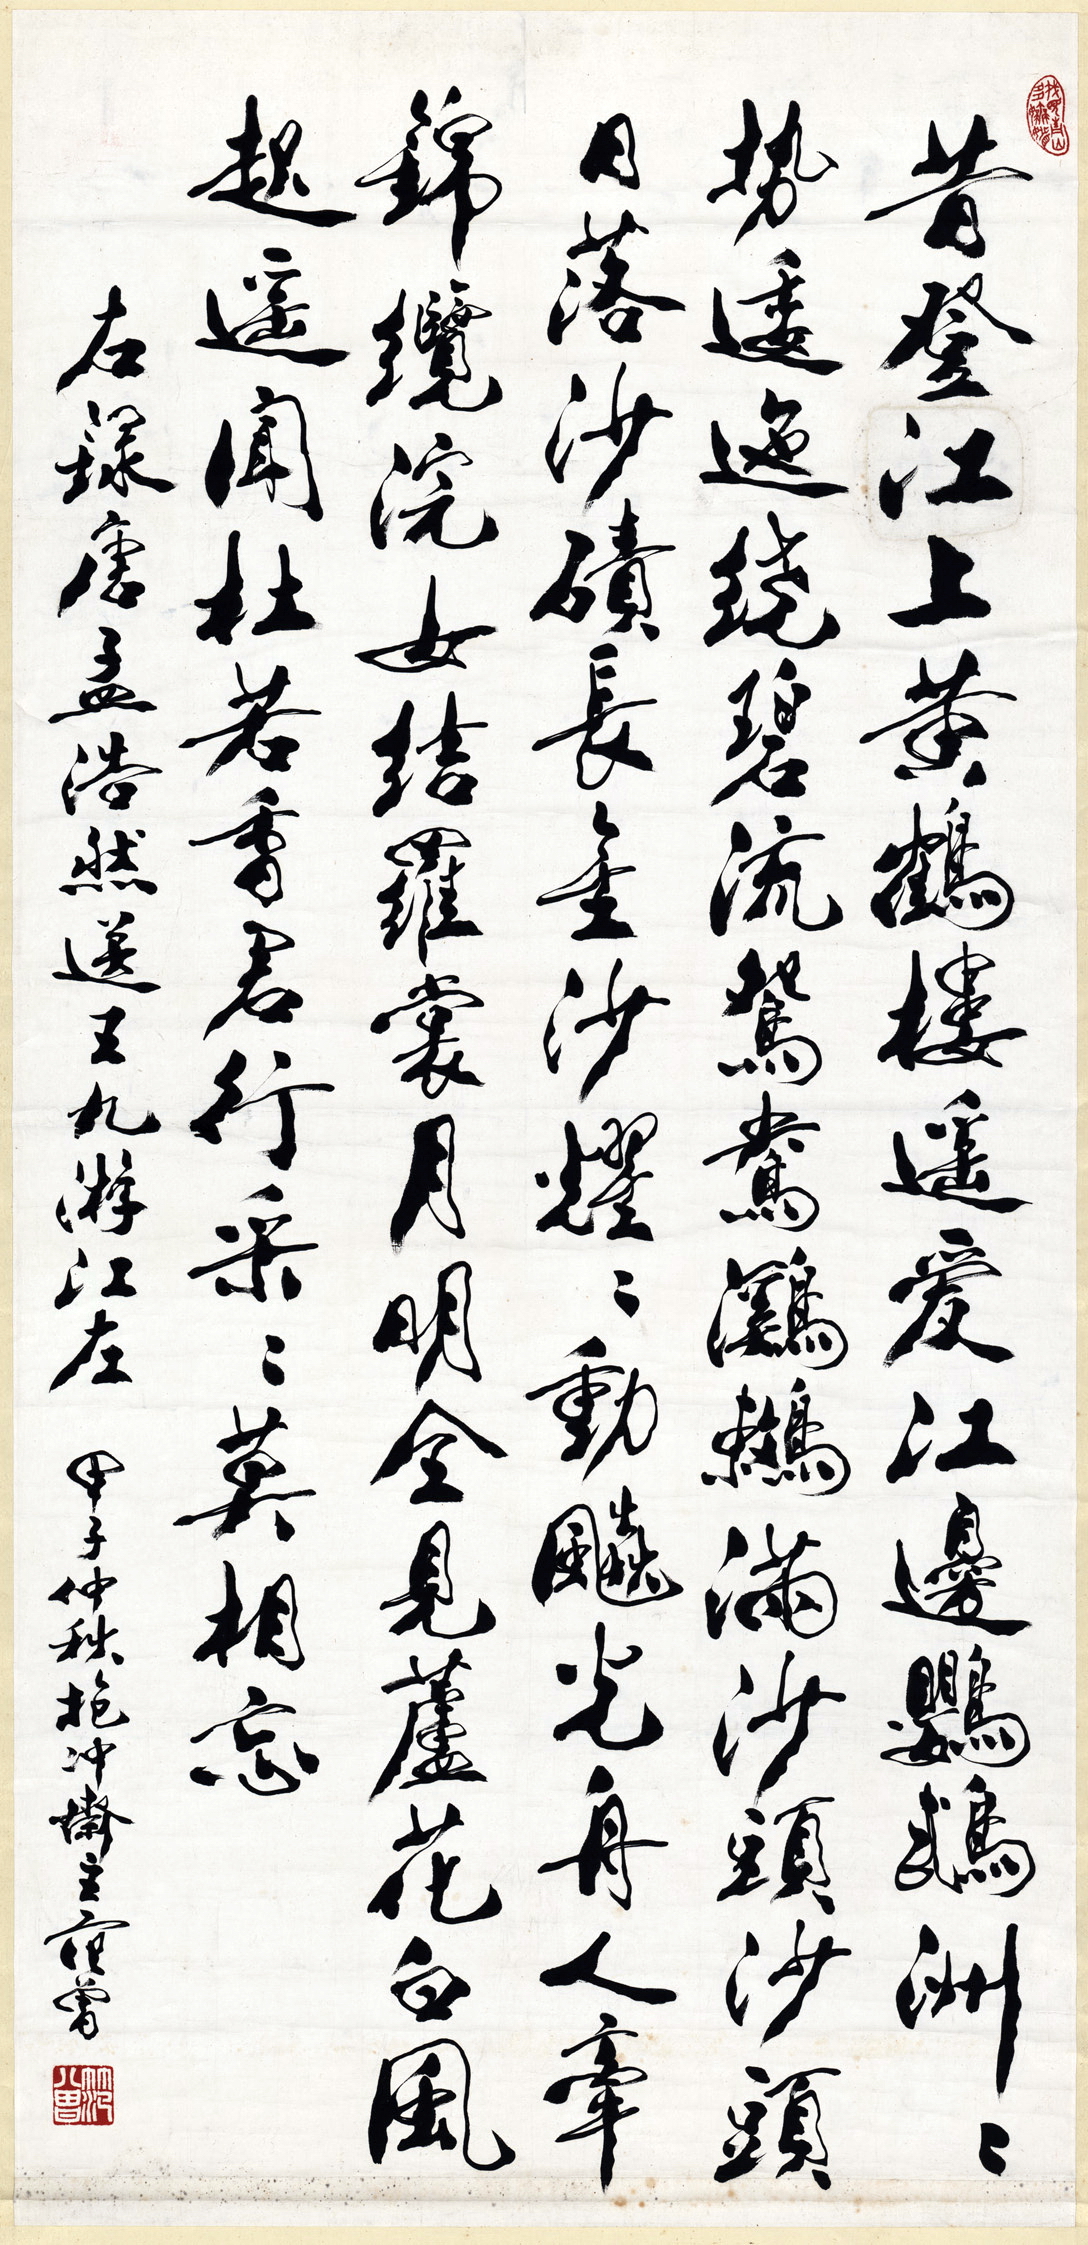 我見青山多嫵媚
昔登江上黄鶴樓遥愛江邊鸚鵡洲〻
勢逶迤繞碧流鴛鴦鸂鶒滿沙頭沙頭
日落沙磧長金沙耀〻動飈光舟人牽
錦纜浣女結羅裳月明全見蘆花白風
起遥聞杜若香君行采〻莫相忘
右録唐孟浩然送王九游江左 甲子仲秋抱冲齋主范曾
范曾